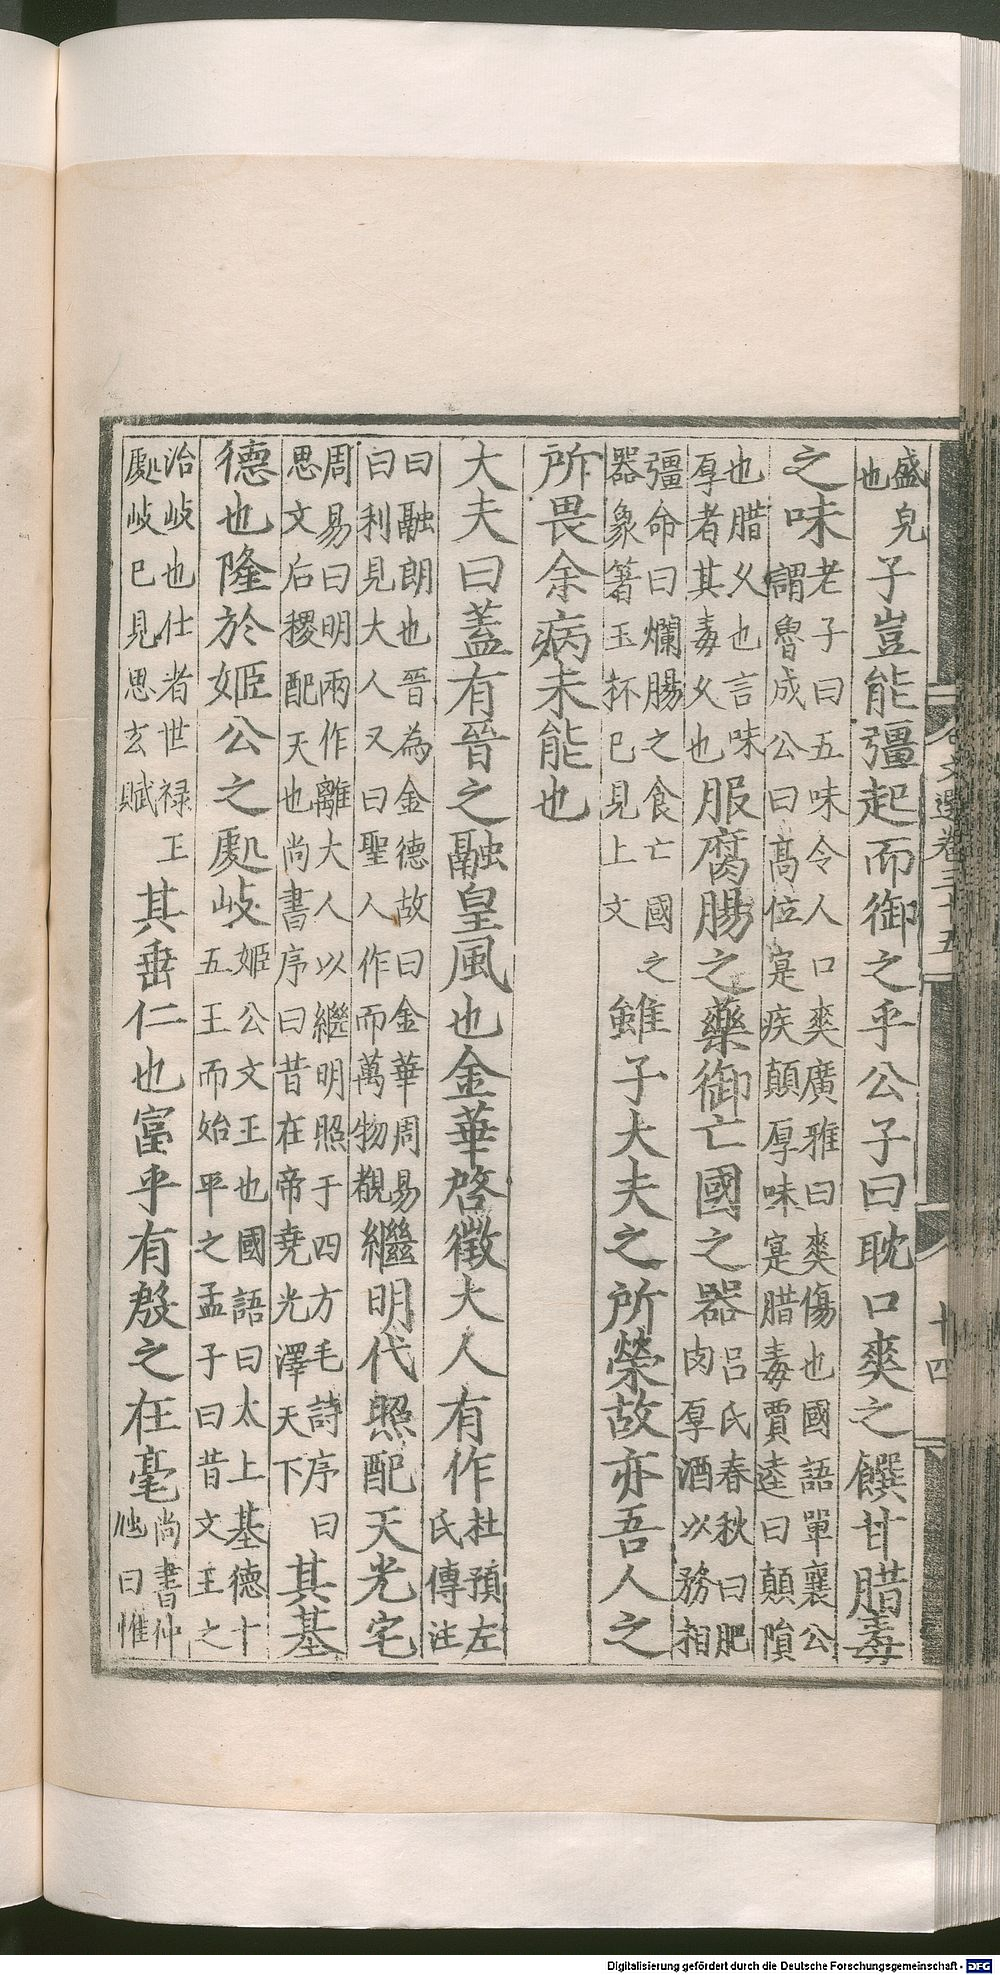 盛皃也子豈能彊起而御之乎公子曰耽口爽之饌甘腊毒
之味老子曰五味令人口爽廣雅曰爽傷也國語單襄公謂魯成公曰高位寔疾顛厚味寔腊毒賈逵曰顛隕
也腊乆也言味厚者其毒乆也服腐腸之藥御亡國之器呂氏春秋曰肥肉厚酒以務相
彊命曰爛腸之食亡國之器象箸玉杯已見上文雖子大夫之所榮故亦吾人之
所畏余病未能也
大夫曰蓋有晉之融皇風也金華啓徵大人有作杜預左氏傳注
曰融朗也晉為金德故曰金華周易曰利見大人又曰聖人作而萬物覩繼明代照配天光宅
周易曰明兩作離大人以繼明照于四方毛詩序曰思文后稷配天也尚書序曰昔在帝堯光澤天下其基
德也隆於姬公之處岐姬公文王也國語曰太上基德十五王而始平之孟子曰昔文王之
治岐也仕者世禄王處岐已見思玄賦其垂仁也富乎有殷之在亳尚書仲虺曰惟
文選卷三十五
十四
Digitalisierung gefördert durch die Deutsche Forschungsgemeinschaft - DFG